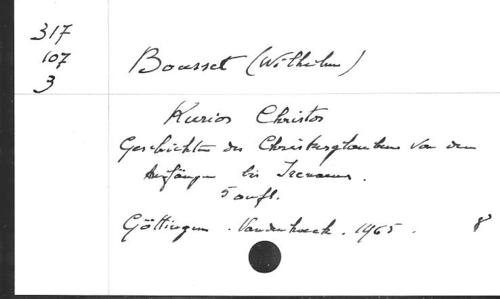 317
107
3
Bousset (Wilhelm)
Kurios Christos
Geschichte des Christusglaubens von den
Anfängen bis Irenaeus.
5 aufl.
Göttingen. Vandenhoeck. 1965. 8